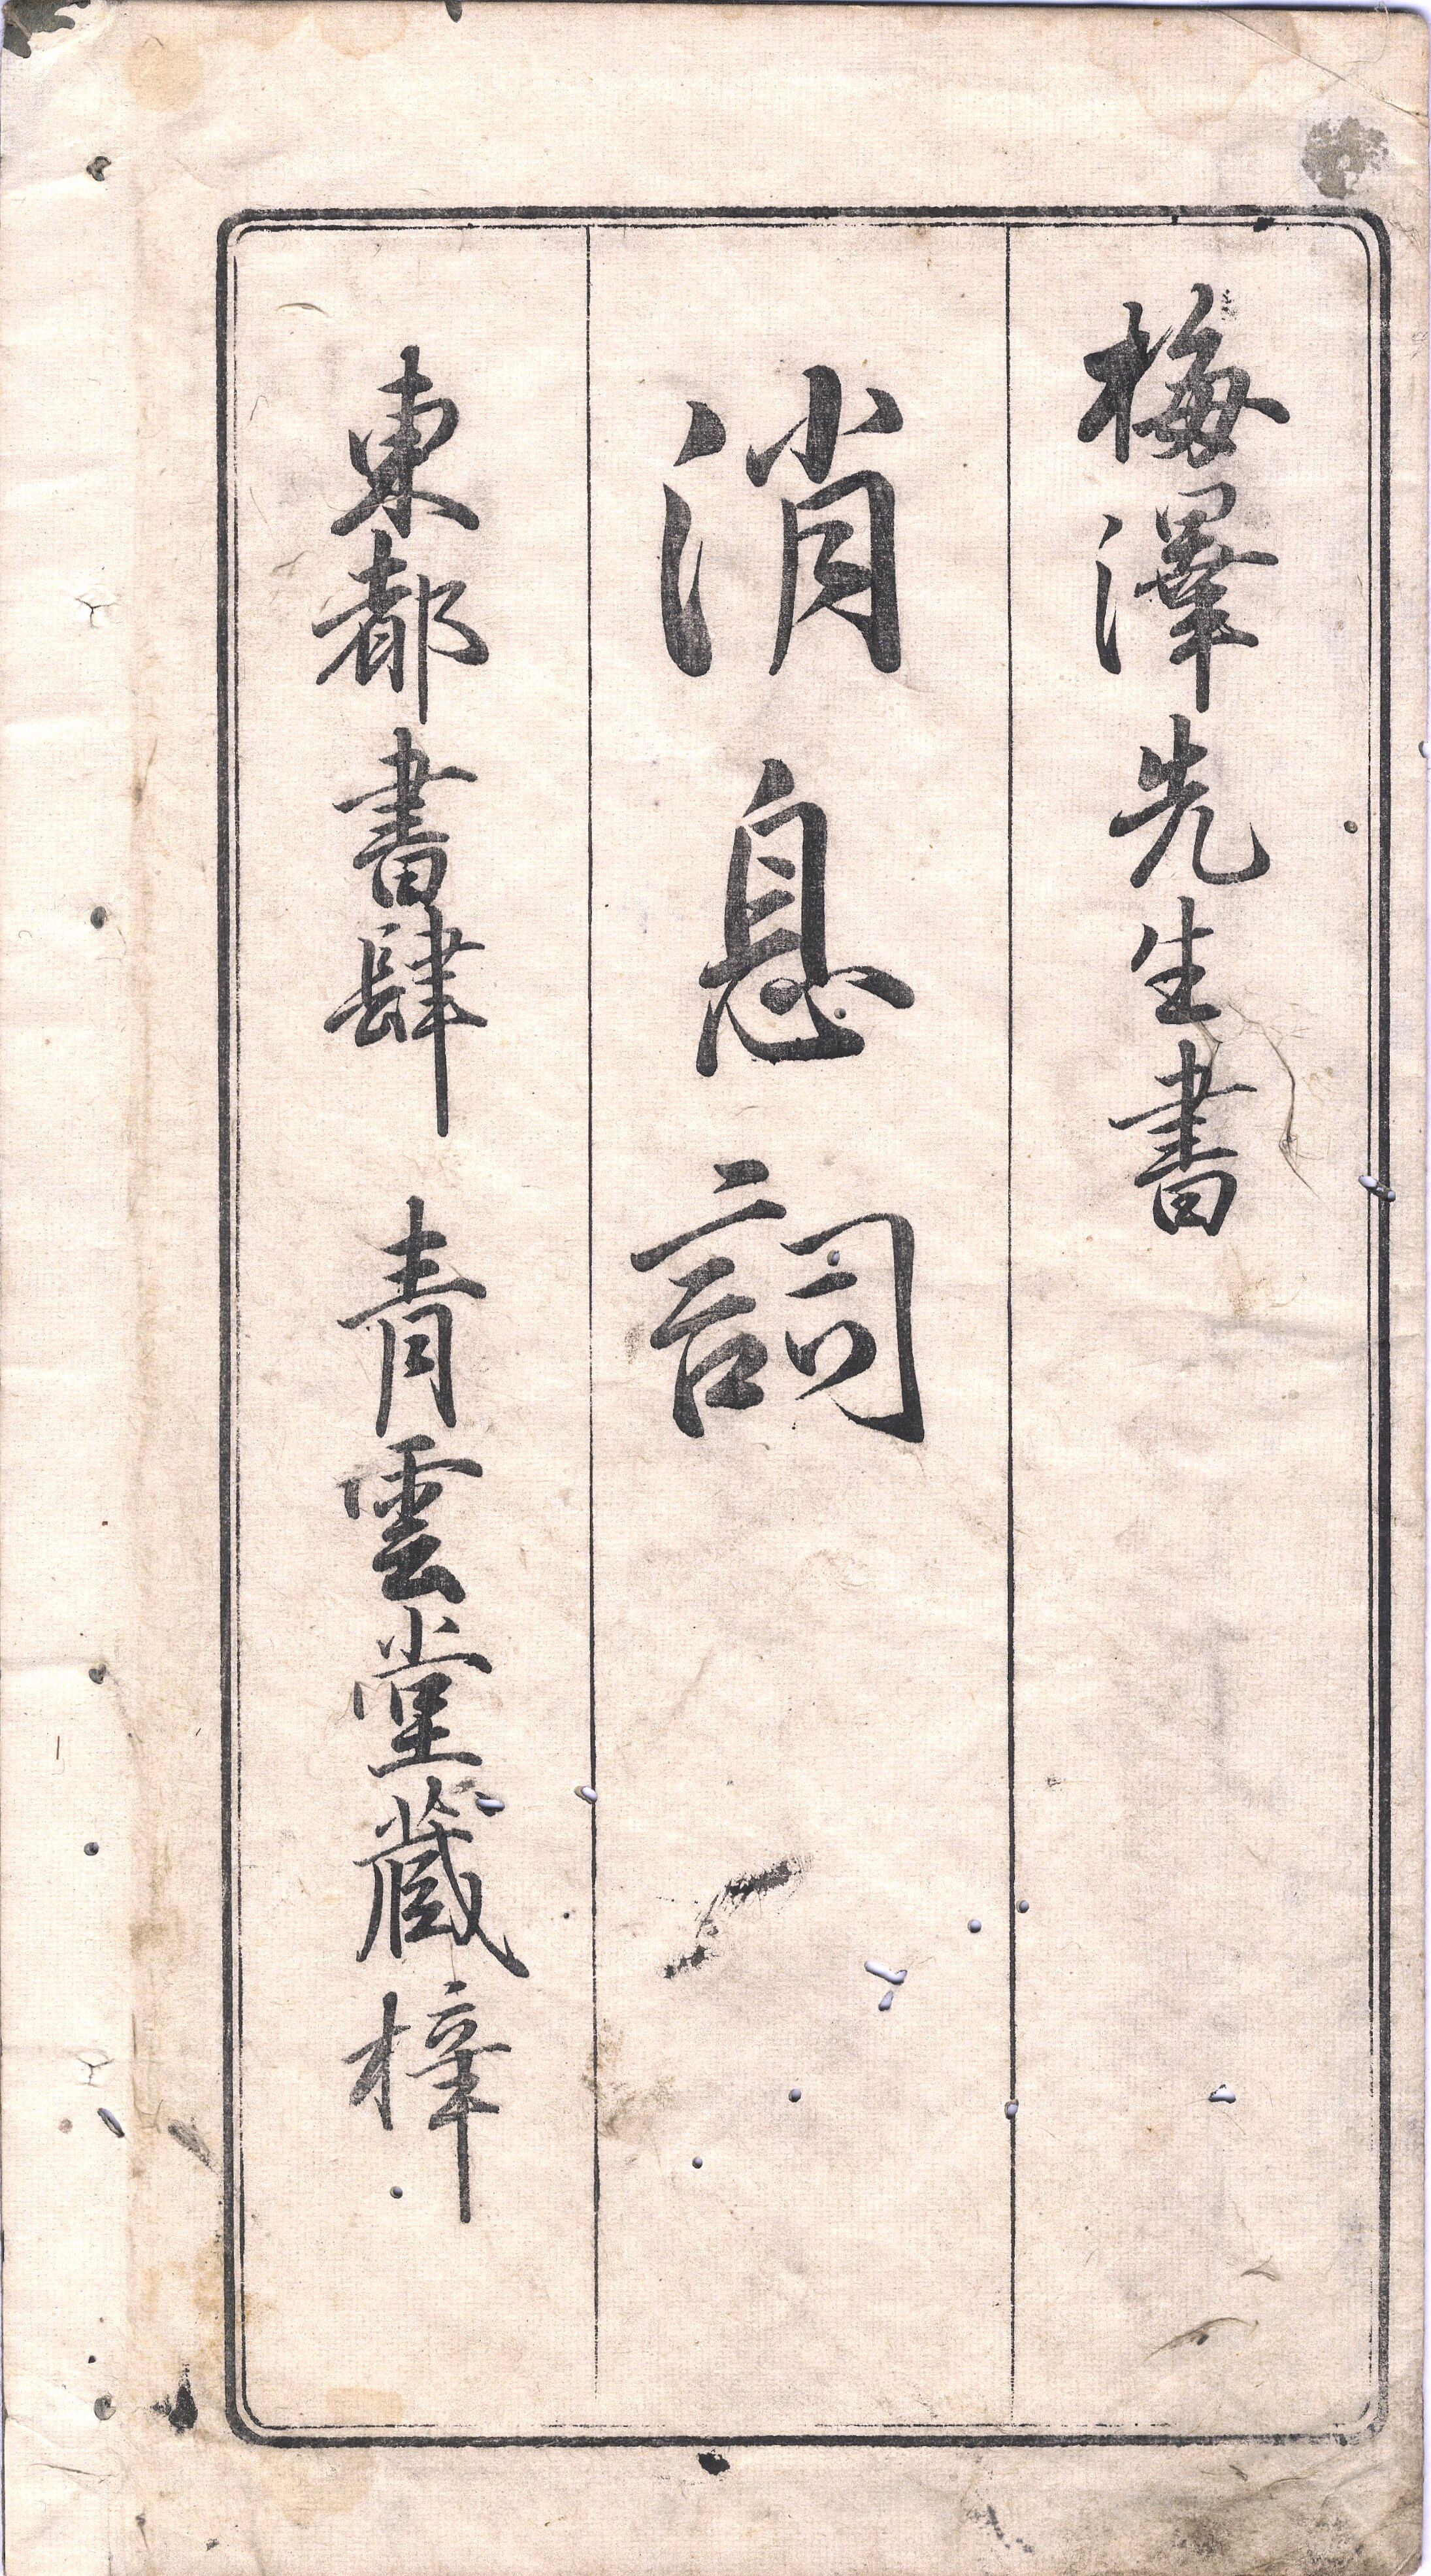 梅澤先生書
消息詞
東都書肆 青雲堂蔵梓